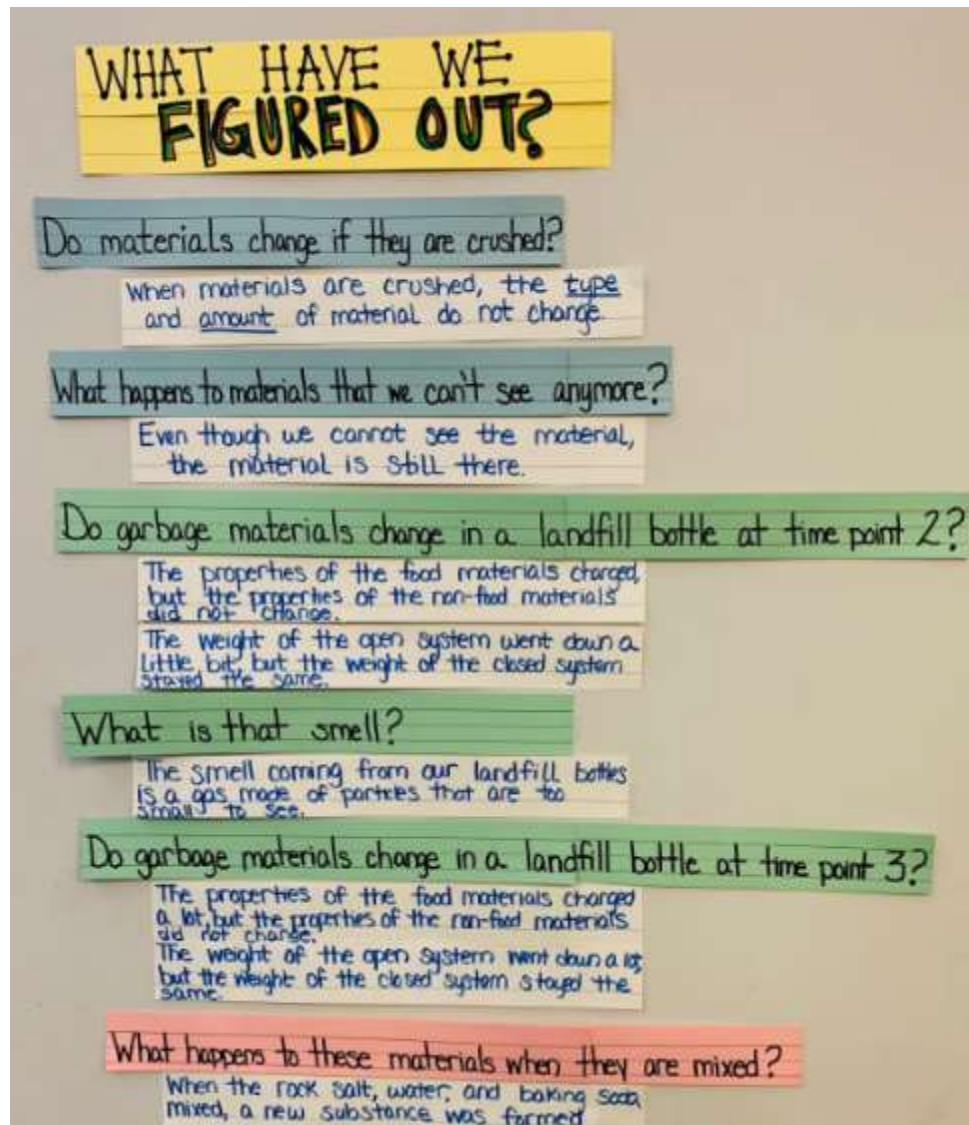 WHAT HAVE WE
FIGURED OUT?
Do materials change if they are crushed?
When materials are crushed, the type
and amount of material do not change.
What happens to materials that we can't see anymore?
Even though we cannot see the material,
the material is still there.
Do garbage materials change in a landfill bottle at time point 2?
The properties of the food materials changed,
but the properties of the non-food materials
did not change.
The weight of the open system went down a
little bit, but the weight of the closed system
stayed the same.
What is that smell?
The smell coming from our landfill bottles
is a gas made of particles that are too
small to see.
Do garbage materials change in a landfill bottle at time point 3?
The properties of the food materials changed
a lot, but the properties of the non-food materials
did not change.
The weight of the open system went down a lot,
but the weight of the closed system stayed the
same.
What happens to these materials when they are mixed?
When the rock salt, water, and baking soda
mixed, a new substance was formed